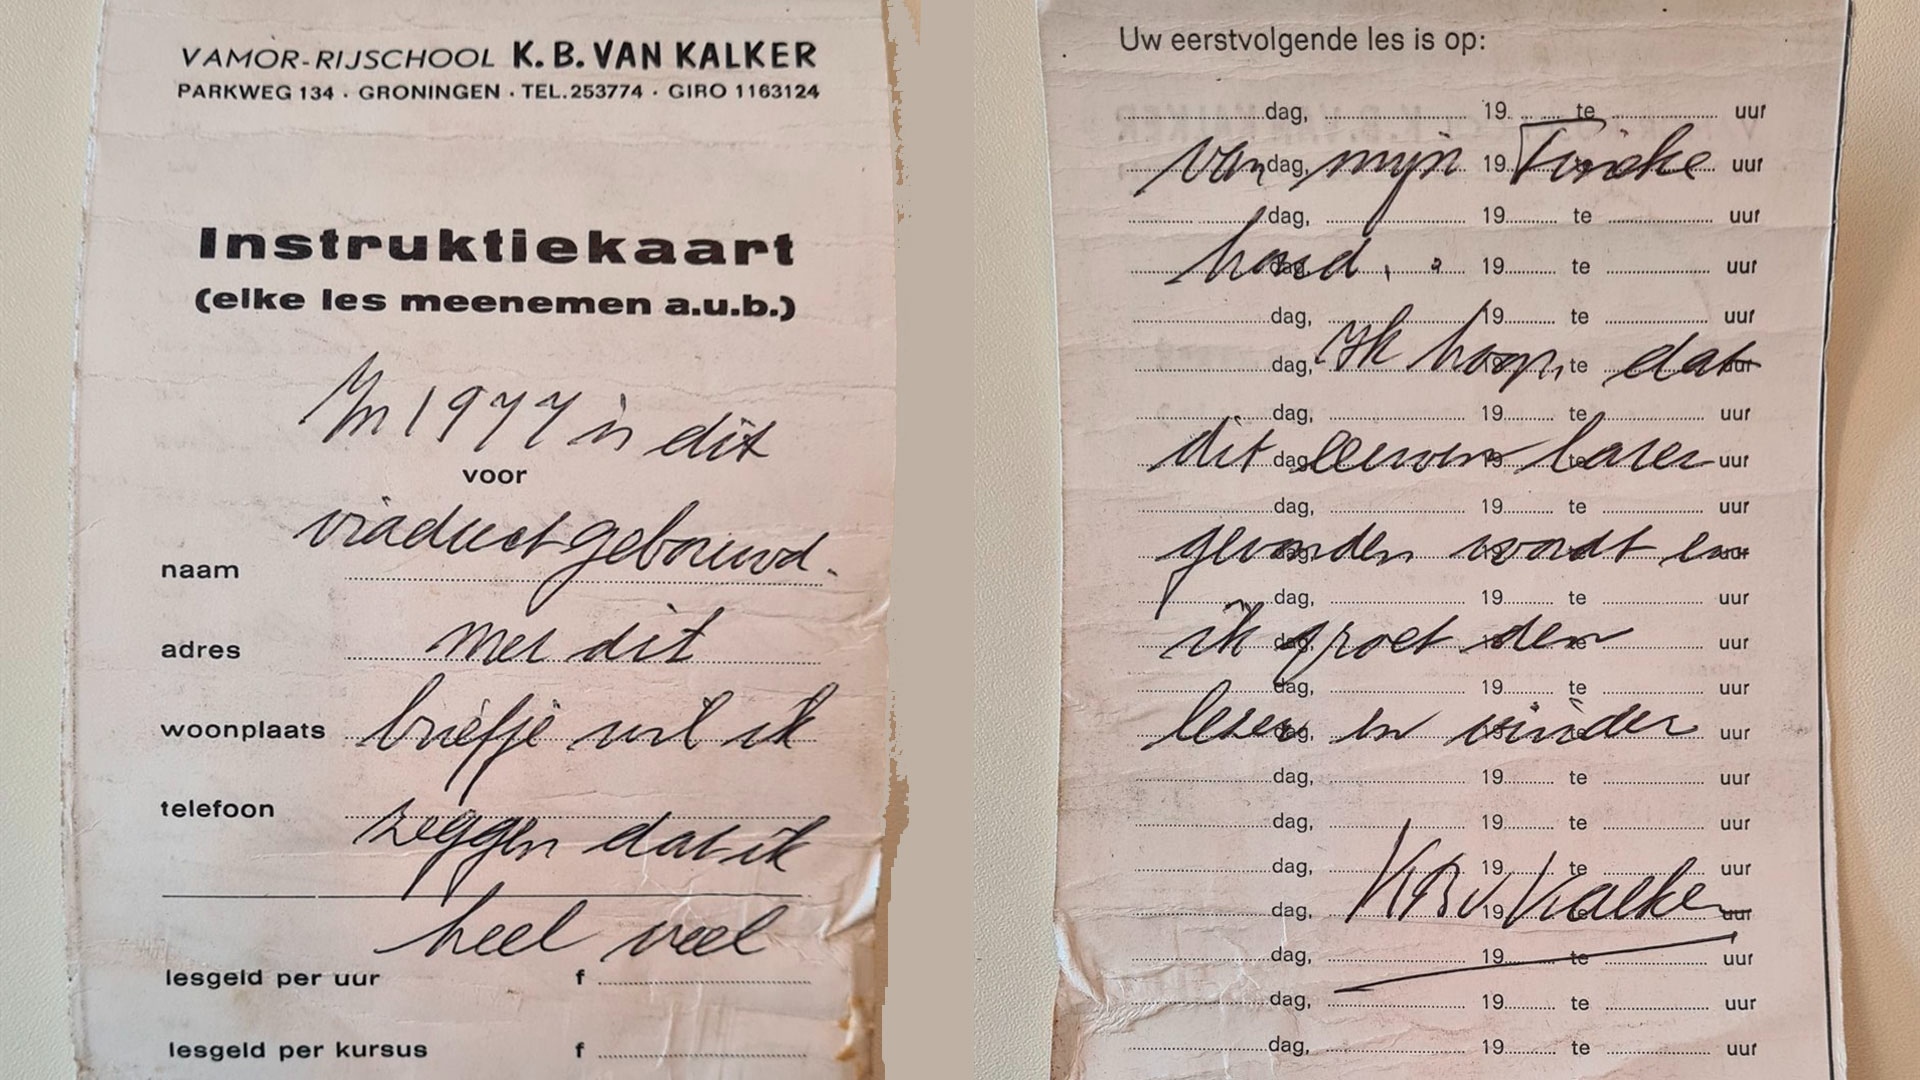 VAMOR-RIJSCHOOL K. B. VAN KALKER
PARKWEG 134 · GRONINGEN · TEL. 253774 · GIRO 1163124
Instruktiekaart
(elke les meenemen a.u.b.)
In 1977 is dit
voor
viaduct gebouwd.
naam
adres met dit
woonplaats briefje wil ik
telefoon
zeggen dat ik
heel veel
lesgeld per uur f
lesgeld per kursus f
Uw eerstvolgende les is op:
dag, 19 te uur
van mijn Tineke
dag, 19 te uur
dag, 19 te uur
houd.
dag, 19 te uur
dag, 19 te uur
Ik hoop, dat
dag, 19 te uur
dag, 19 te uur
dit eeuwen later
dag, 19 te uur
dag, 19 te uur
gevonden wordt en
dag, 19 te uur
dag, 19 te uur
ik groet den
dag, 19 te uur
dag, 19 te uur
lezer en vinder
dag, 19 te uur
dag, 19 te uur
dag, 19 te uur
dag, 19 te uur
K B v Kalker
dag, 19 te uur
dag, 19 te uur
dag, 19 te uur
dag, 19 te uur